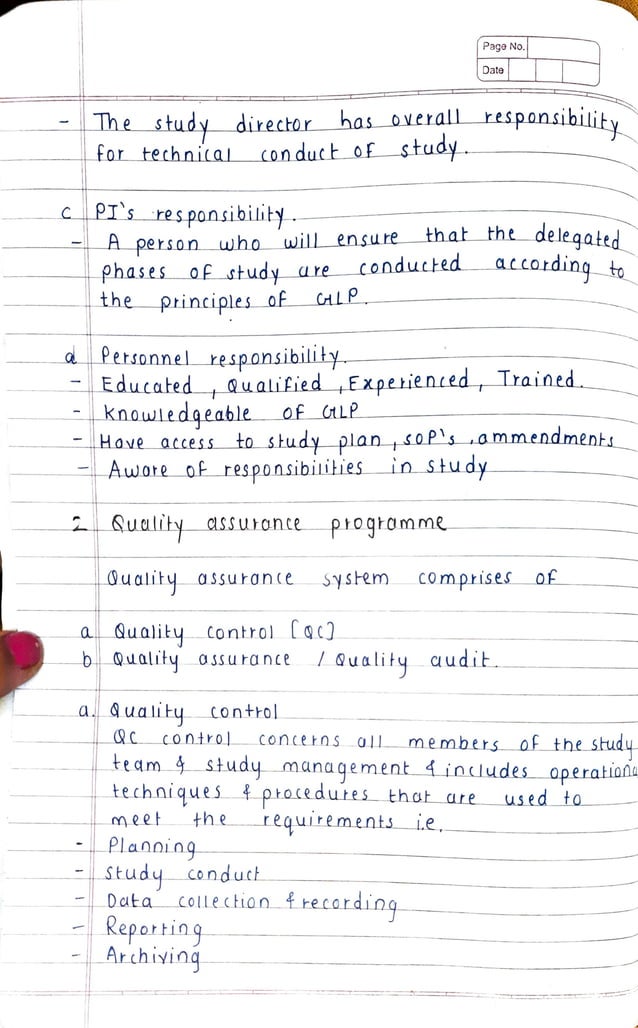 Page No.
Date
- The study director has overall responsibility
for technical conduct of study.
c PI's responsibility.
- A person who will ensure that the delegated
phases of study are conducted according to
the principles of GLP.
d Personnel responsibility.
- Educated, Qualified, Experienced, Trained.
- Knowledgeable of GLP
- Have access to study plan, SOP's, ammendments
- Aware of responsibilities in study
2 Quality assurance programme
Quality assurance system comprises of
a Quality control [QC]
b Quality assurance / Quality audit.
a. Quality control
QC control concerns all members of the study
team & study management & includes operationa
techniques & procedures that are used to
meet the requirements i.e.
- Planning
- Study conduct
- Data collection & recording
- Reporting
- Archiving